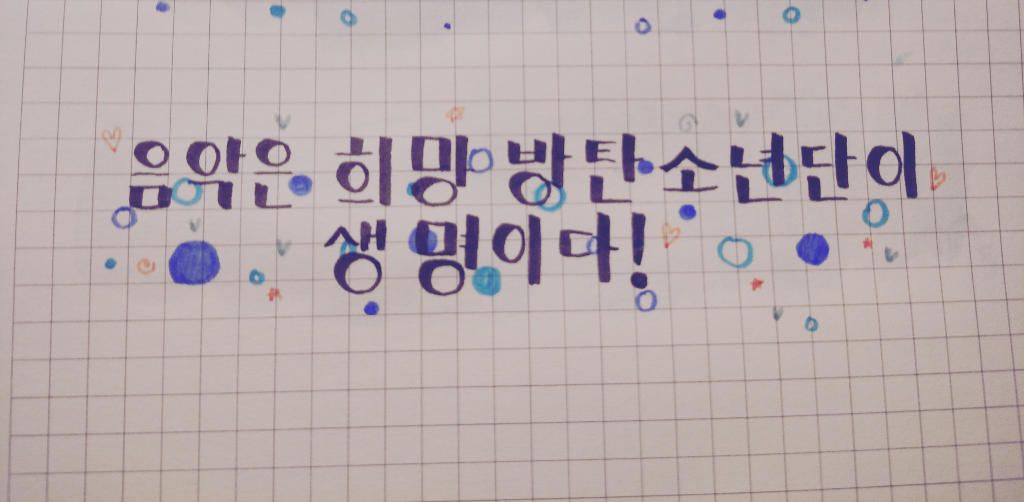 음악은 희망 방탄소년단이
생명이다!